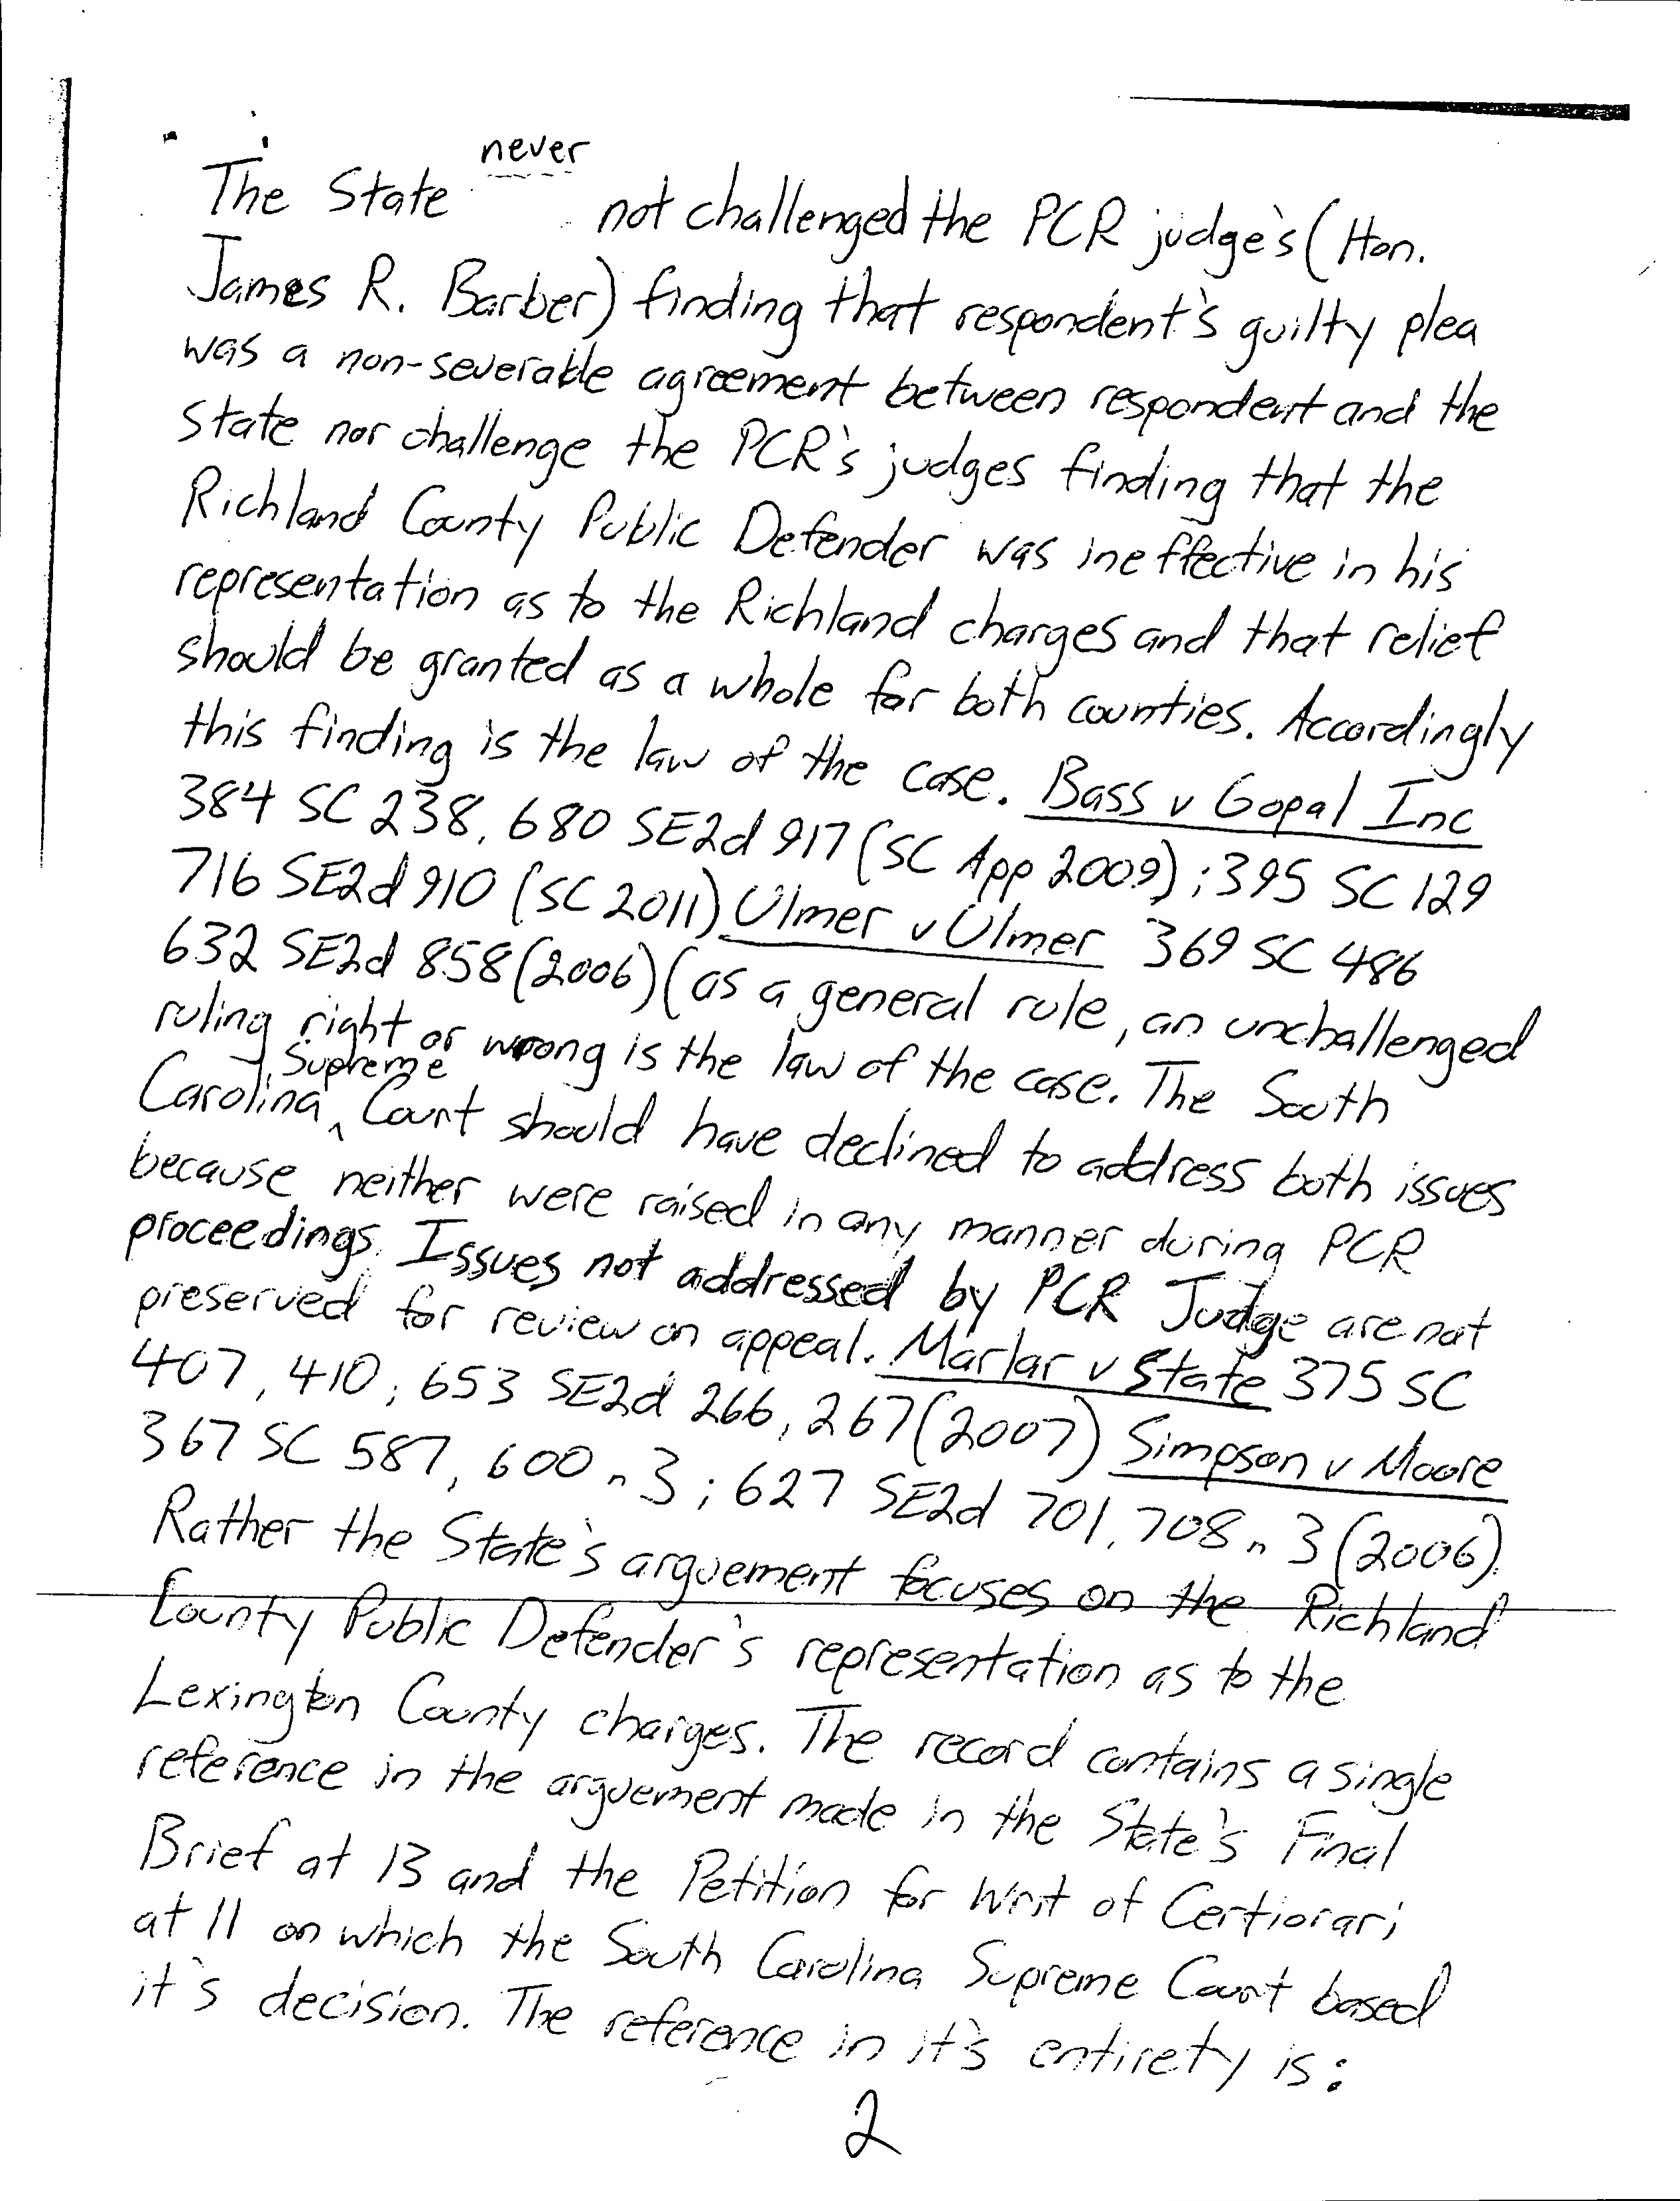 never
The State not challenged the PCR judge's (Hon.
James R. Barber) finding that respondent's guilty plea
was a non-severable agreement between respondent and the
State nor challenge the PCR's judges finding that the
Richland County Public Defender was ineffective in his
representation as to the Richland charges and that relief
should be granted as a whole for both counties. Accordingly
this finding is the law of the case. Bass v Gopal Inc
384 SC 238, 680 SE2d 917 (SC App 2009); 395 SC 129
716 SE2d 910 (SC 2011) Ulmer v Ulmer 369 SC 486
632 SE2d 858 (2006) (as a general rule, an unchallenged
ruling right or wrong is the law of the case. The South
Supreme
Carolina ^ Court should have declined to address both issues
because neither were raised in any manner during PCR
proceedings. Issues not addressed by PCR Judge are not
preserved for review on appeal. Marlar v State 375 SC
407, 410, 653 SE2d 266, 267 (2007) Simpson v Moore
367 SC 587, 600 n 3; 627 SE2d 701, 708 n 3 (2006).
Rather the State's arguement focuses on the Richland
County Public Defender's representation as to the
Lexington County charges. The record contains a single
reference in the arguement made in the State's Final
Brief at 13 and the Petition for Writ of Certiorari
at 11 on which the South Carolina Supreme Court based
it's decision. The reference in it's entirety is:
2